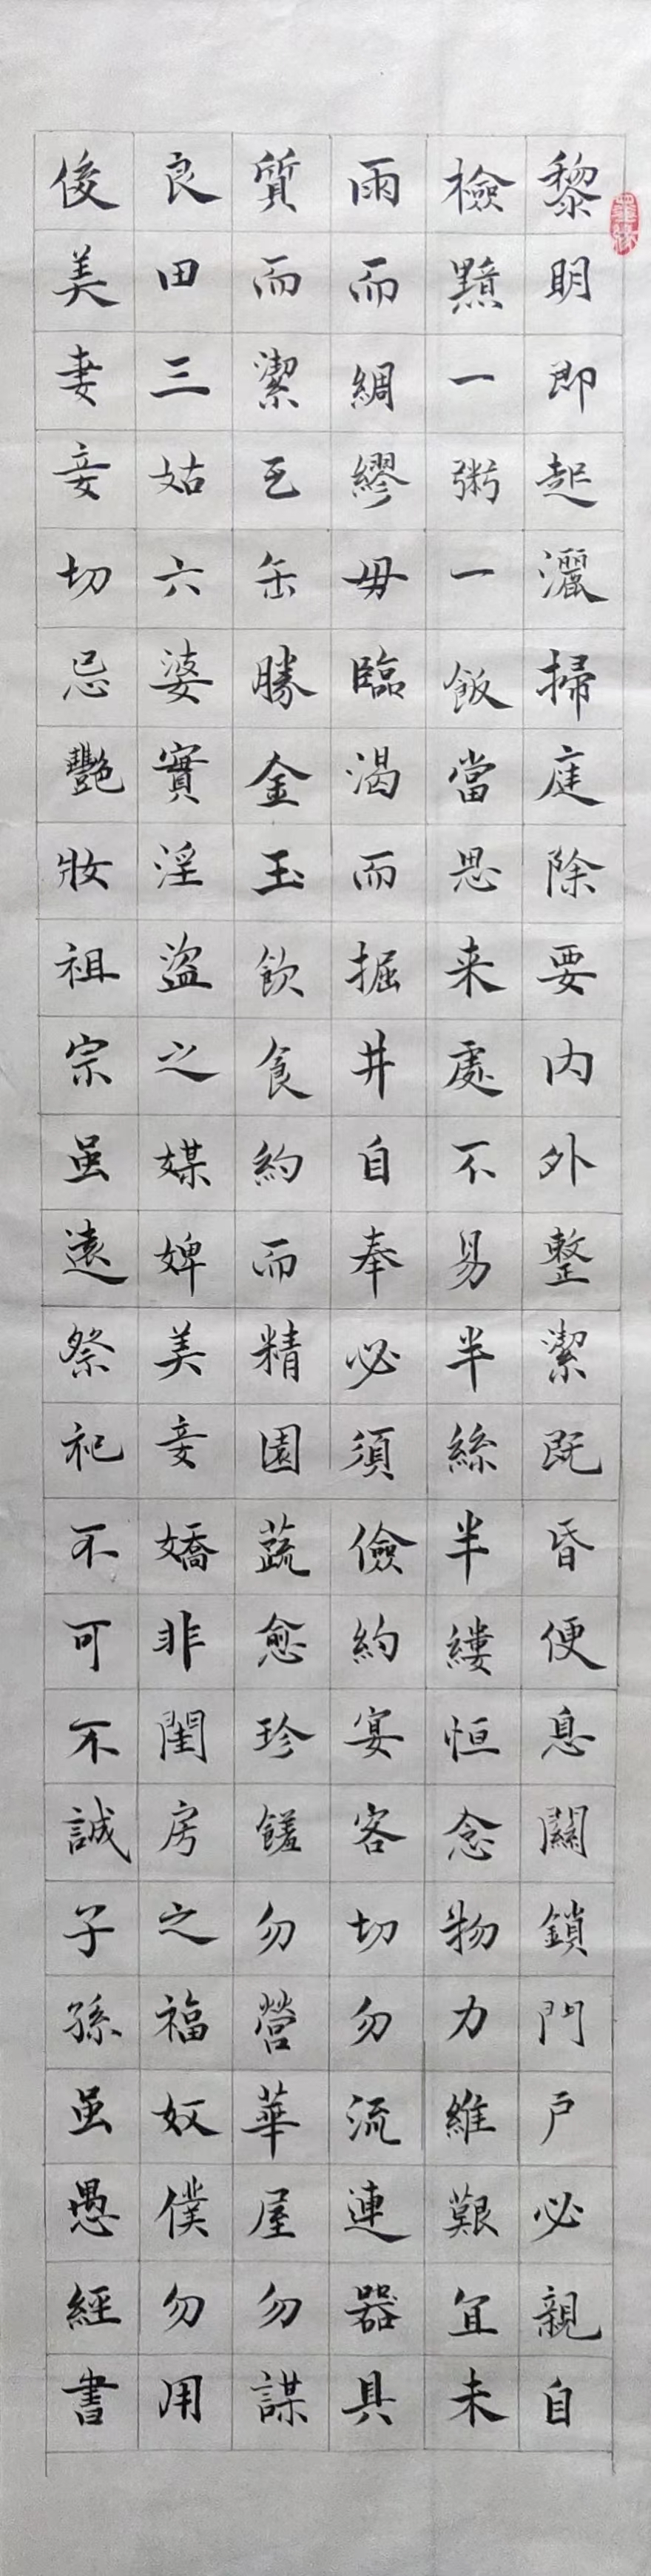 黎明即起灑掃庭除要内外整潔既昏便息關鎖門户必親自
檢點一粥一飯當思来處不易半絲半縷恒念物力維艱宜未
雨而綢繆毋臨渴而掘井自奉必須儉約宴客切勿流連器具
質而潔瓦缶勝金玉飲食約而精園蔬愈珍饈勿營華屋勿謀
良田三姑六婆實淫盜之媒婢美妾嬌非閨房之福奴僕勿用
俊美妻妾切忌艷妝祖宗虽遠祭祀不可不誠子孫虽愚經書